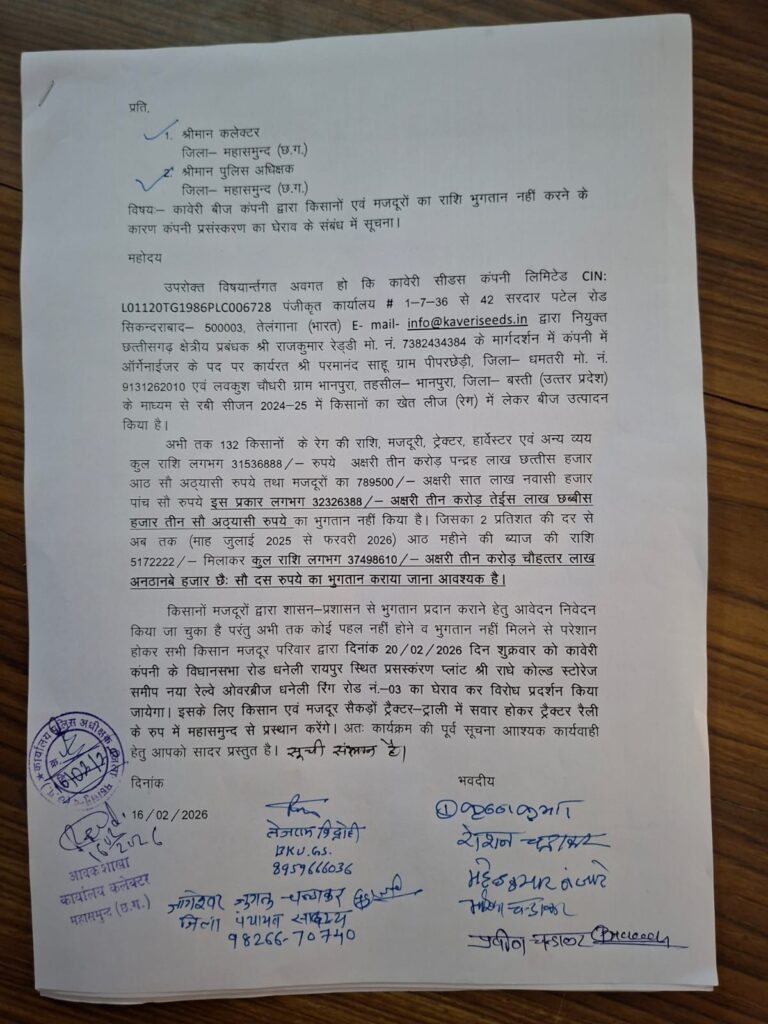 प्रति,
1. श्रीमान कलेक्टर
जिला– महासमुन्द (छ.ग.)
2. श्रीमान पुलिस अधिक्षक
जिला– महासमुन्द (छ.ग.)
विषयः– कावेरी बीज कंपनी द्वारा किसानों एवं मजदूरों का राशि भुगतान नहीं करने के
कारण कंपनी प्रसंस्करण का घेराव के संबंध में सूचना।
महोदय
उपरोक्त विषयार्न्तगत अवगत हो कि कावेरी सीडस कंपनी लिमिटेड CIN:
L01120TG1986PLC006728 पंजीकृत कार्यालय # 1–7–36 से 42 सरदार पटेल रोड
सिकन्दराबाद– 500003, तेलंगाना (भारत) E- mail- info@kaveriseeds.in द्वारा नियुक्त
छत्तीसगढ़ क्षेत्रीय प्रबंधक श्री राजकुमार रेड्डी मो. नं. 7382434384 के मार्गदर्शन में कंपनी में
ऑर्गेनाईजर के पद पर कार्यरत श्री परमानंद साहू ग्राम पीपरछेड़ी, जिला– धमतरी मो. नं.
9131262010 एवं लवकुश चौधरी ग्राम भानपुरा, तहसील– भानपुरा, जिला– बस्ती (उत्तर प्रदेश)
के माध्यम से रबी सीजन 2024–25 में किसानों का खेत लीज (रेग) में लेकर बीज उत्पादन
किया है।
अभी तक 132 किसानों के रेग की राशि, मजदूरी, ट्रेक्टर, हार्वेस्टर एवं अन्य व्यय
कुल राशि लगभग 31536888/– रुपये अक्षरी तीन करोड़ पन्द्रह लाख छत्तीस हजार
आठ सौ अठ्यासी रुपये तथा मजदूरों का 789500/– अक्षरी सात लाख नवासी हजार
पांच सौ रुपये इस प्रकार लगभग 32326388/– अक्षरी तीन करोड़ तेईस लाख छब्बीस
हजार तीन सौ अठ्यासी रुपये का भुगतान नहीं किया है। जिसका 2 प्रतिशत की दर से
अब तक (माह जुलाई 2025 से फरवरी 2026) आठ महीने की ब्याज की राशि
5172222/– मिलाकर कुल राशि लगभग 37498610/– अक्षरी तीन करोड़ चौहत्तर लाख
अनठानबे हजार छैः सौ दस रुपये का भुगतान कराया जाना आवश्यक है।
किसानों मजदूरों द्वारा शासन–प्रशासन से भुगतान प्रदान कराने हेतु आवेदन निवेदन
किया जा चुका है परंतु अभी तक कोई पहल नहीं होने व भुगतान नहीं मिलने से परेशान
होकर सभी किसान मजदूर परिवार द्वारा दिनांक 20/02/2026 दिन शुक्रवार को कावेरी
कंपनी के विधानसभा रोड धनेली रायपुर स्थित प्रसस्करंण प्लांट श्री राधे कोल्ड स्टोरेज
समीप नया रेल्वे ओवरब्रीज धनेली रिंग रोड नं.–03 का घेराव कर विरोध प्रदर्शन किया
जायेगा। इसके लिए किसान एवं मजदूर सैकड़ों ट्रैक्टर–ट्राली में सवार होकर ट्रैक्टर रैली
के रुप में महासमुन्द से प्रस्थान करेंगे। अतः कार्यक्रम की पूर्व सूचना आाश्यक कार्यवाही
हेतु आपको सादर प्रस्तुत है। सूची संलग्न है।
दिनांक
भवदीय
16/02/2026
कार्यालय पुलिस अधीक्षक
16/02/2026
आवक शाखा
कार्यालय कलेक्टर
महासमुन्द (छ.ग.)
तेजराम विद्रोही
BKU.GS.
8959666036
जागेश्वर जुगनु चन्द्राकर
जिला पंचायत सदस्य
98266-70740
①
रोशन चन्द्राकर